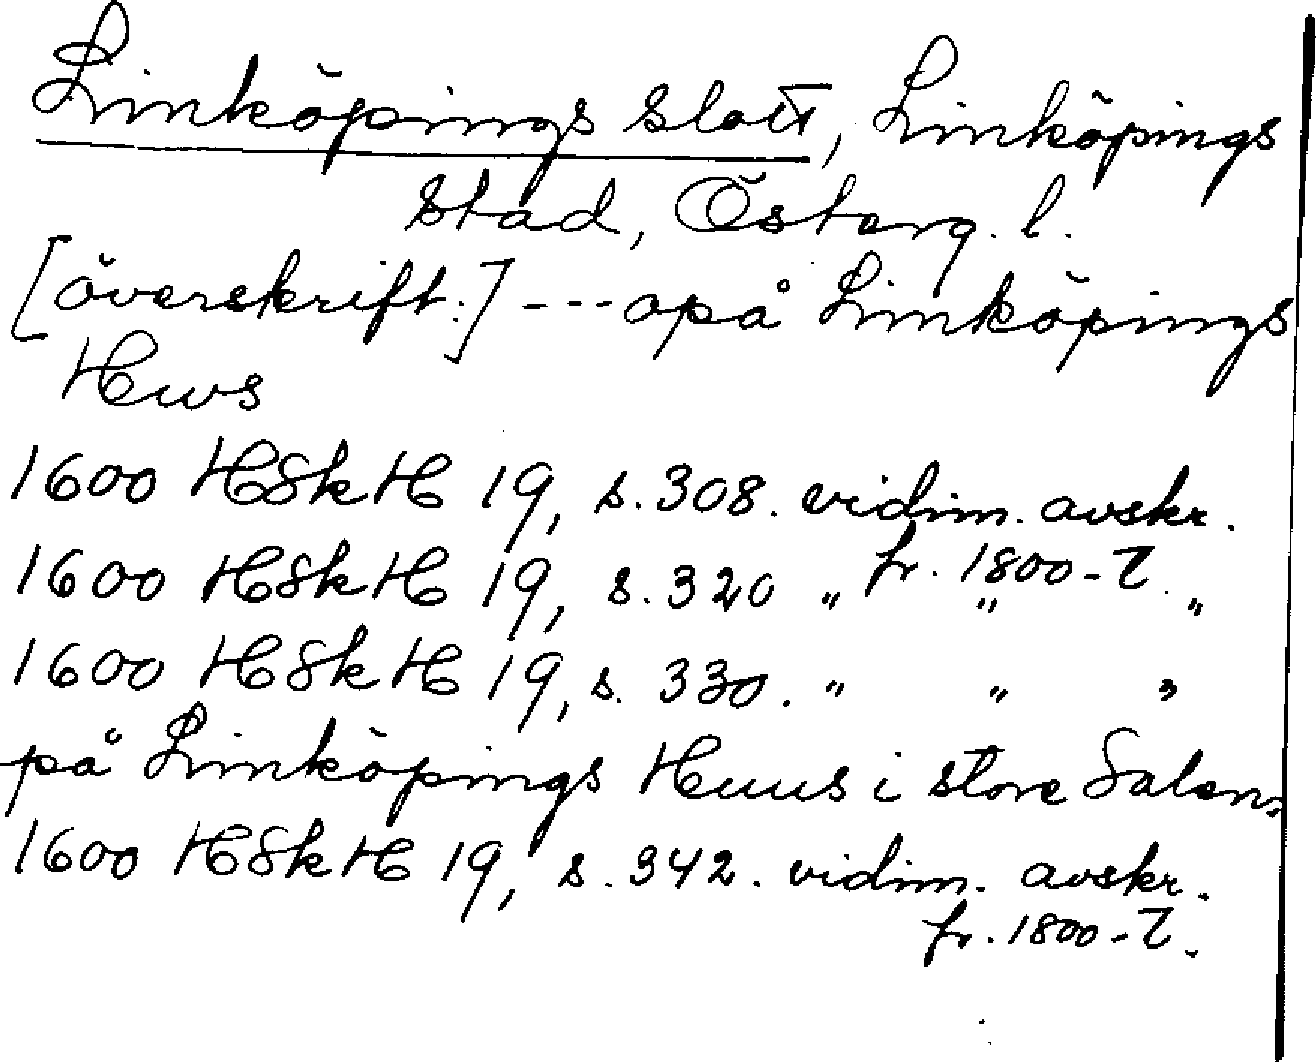 Linköpings slott, Linköpings
stad, Österg. l.
[överskrift:] --- opå Linköpings
Hws
1600 HSkH 19, s. 308. vidim. avskr.
fr. 1800-t.
1600 HSkH 19, s. 320 „ „ „
1600 HSkH 19, s. 330. „ „ „
på Linköpings Huus i store Salen,
1600 HSkH 19, s. 342. vidim. avskr.
fr. 1800-t.